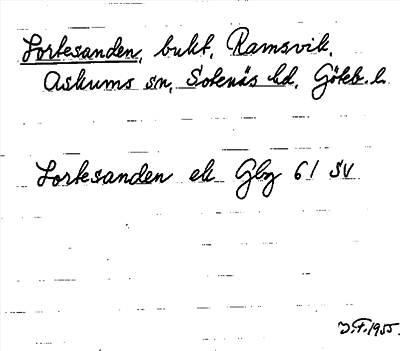 Lortesanden, bukt, Ramsvik,
Askums sn, Sotenäs hd, Göteb. l.
Lortesanden ek Gbg 61 SV
J.F. 1955.